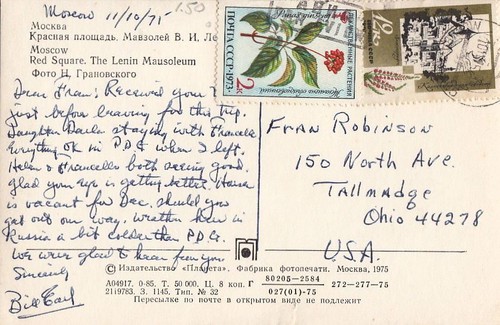 Moscow 11/10/75
1.50
Москва
Красная площадь. Мавзолей В. И. Ле
Moscow
Red Square. The Lenin Mausoleum
Фото Н. Грановского
Dear Fran: Received your
just before leaving for this trip.
Daughter staying with
Everything OK in P.D.G. when I left.
Helen & both seeing good.
glad your eye is getting better. House
is vacant for Dec. should you
get out our way. Weather here in
Russia a bit colder than P.D.G.
We were glad to hear from you
Sincerely,
Bill Earl
ПОЧТА СССР·1973
2К
Лекарственные растения
Женьшень обыкновенный
Panax ginseng
Fran Robinson
150 North Ave.
Tallmadge
Ohio 44278
U.S.A.
© Издательство «Планета». Фабрика фотопечати. Москва, 1975
А04917. 0-85. Т. 50 000. Ц. 8 коп. Г 80205—2584 272—277—75
2119783. З. 1145. Тип. № 32 027(01)-75
Пересылке по почте в открытом виде не подлежит